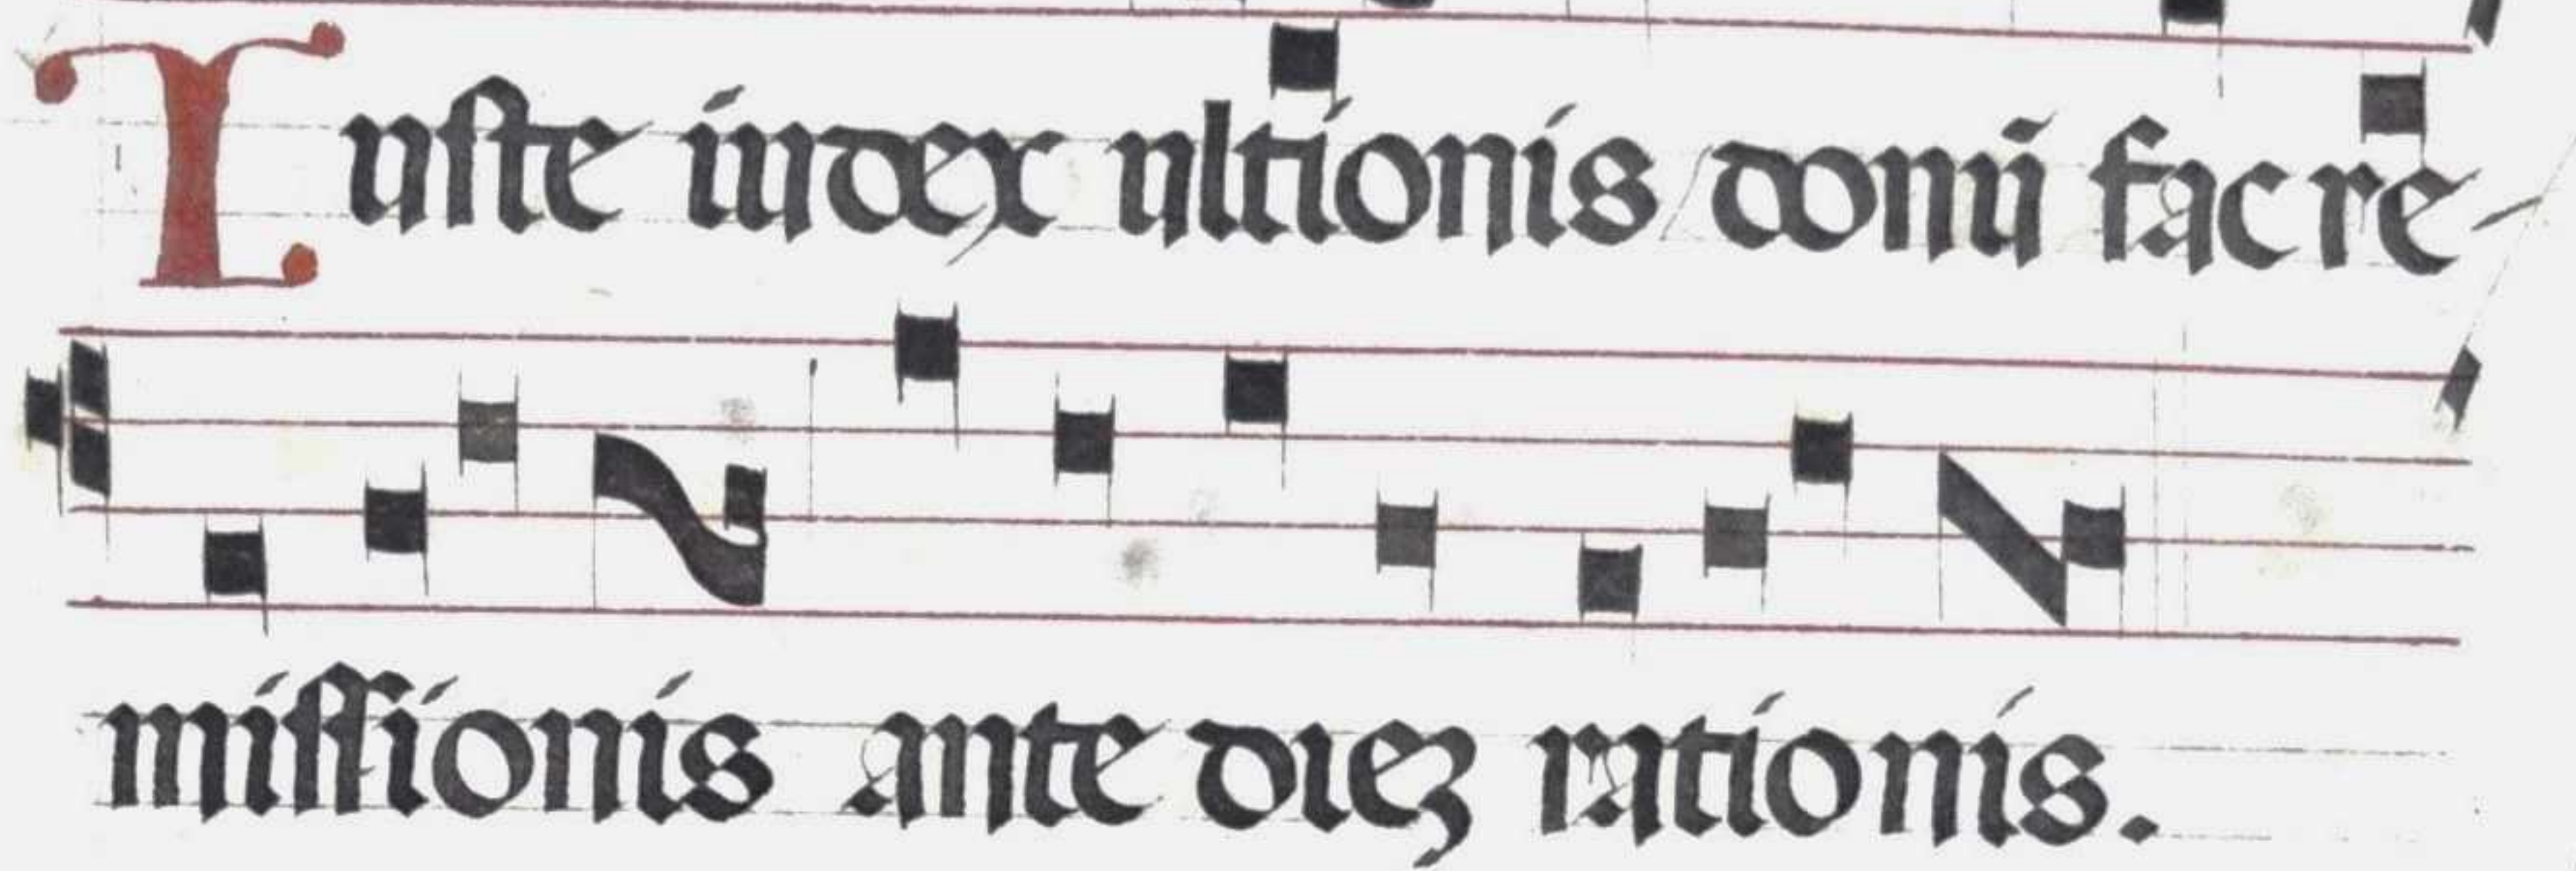 Iuste iudex ultionis donũ fac re-
missionis ante diez rationis.